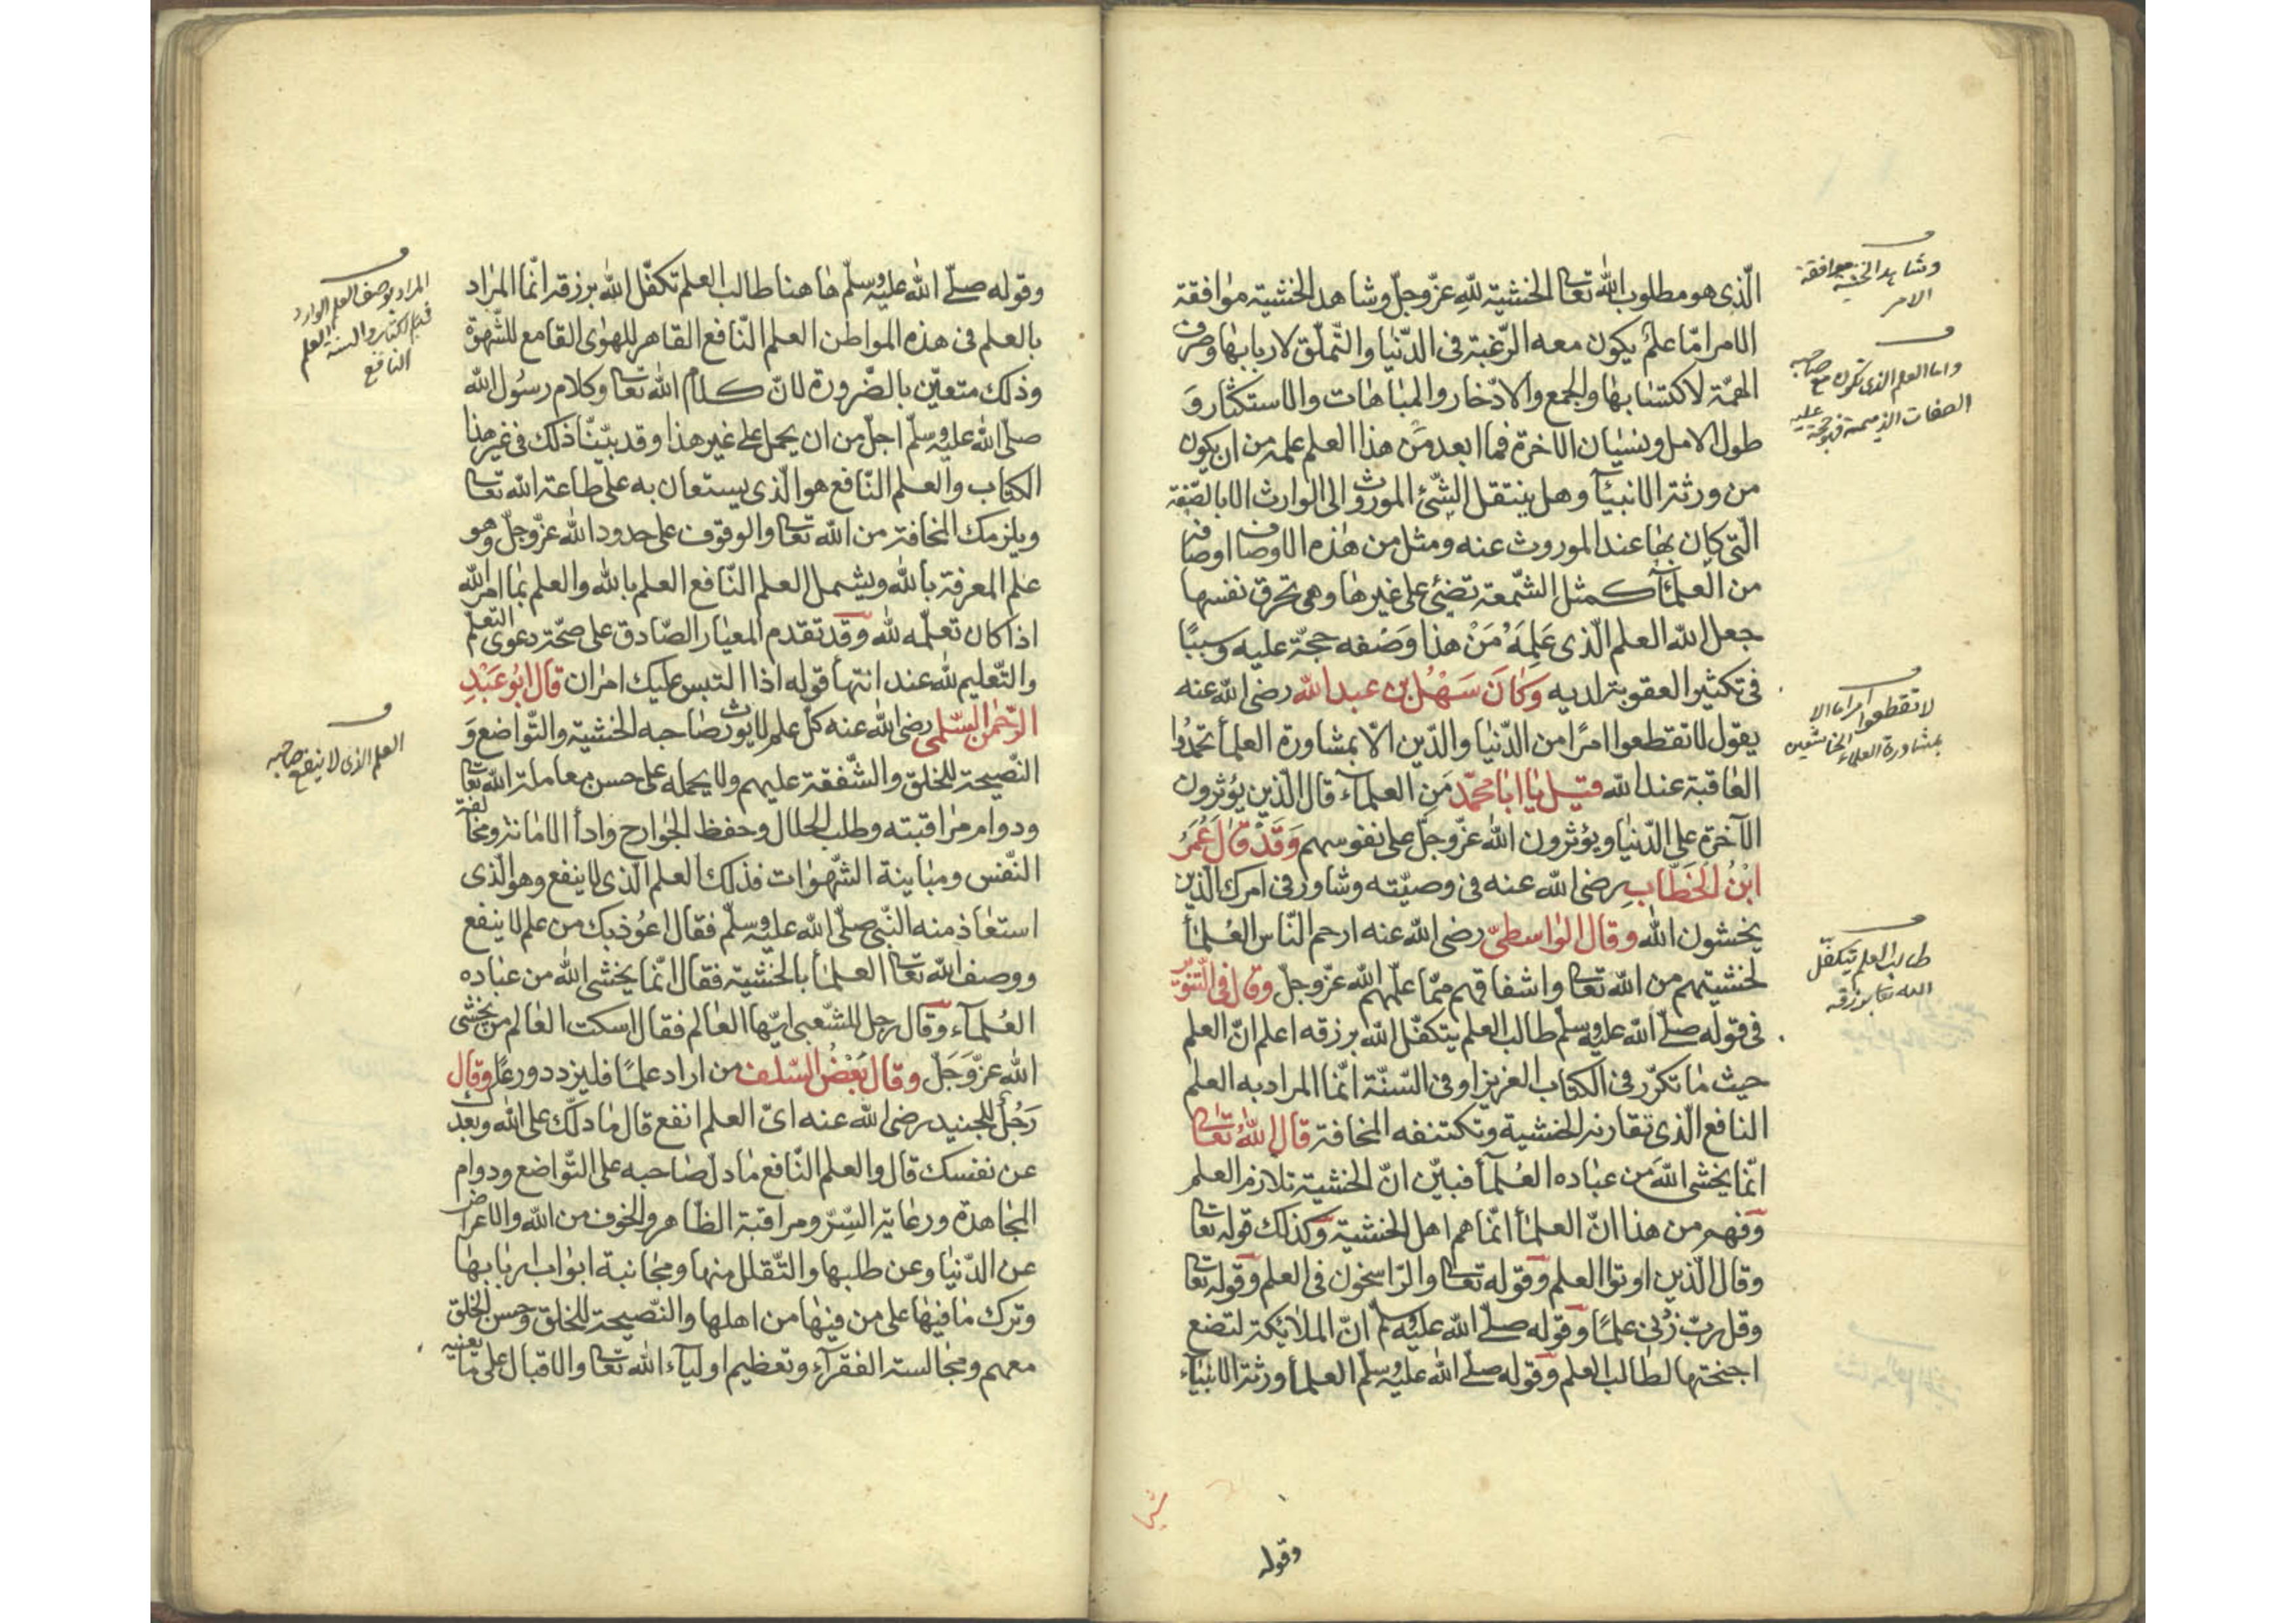 الّذى هو مطلوب الله تعالى الخشية لله عزّ وجلّ وشاهد الخشية موافقة
الامر امّا علم يكون معه الرّغبة فى الدّنيا والتّملّق لاربابها وصرف
الهمّة لاكتسابها والجمع والادّخار والمباهات والاستكثار و
طول الامل ونسيان الآخرة فما ابعد من هذا العلم علمه من ان يكون
من ورثة الانبيآء وهل ينتقل الشّئ الموروث الى الوارث الا بالصّفة
الّتى كان بها عند الموروث عنه ومثل من هذه الاوصاف اوصافه
من العلمآء كمثل الشّمعة تضئ على غيرها وهى تحرق نفسها
جعل الله العلم الّذى عَلِمَهُ مَنْ هذا وَصْفه حجّة عليه وسببًا
فى تكثير العقوبة لديه وَكَانَ سَهْلُ بن عبد الله رضى الله عنه
يقول لا تقطعوا امرًا من الدّنيا والدّين الّا بمشاورة العلمآء تحمدوا
العاقبة عند الله قيل يا ابا محمّد مَنِ العلمآء قال الّذين يؤثرون
الآخرة على الدّنيا ويؤثرون الله عزّ وجلّ على نفوسهم وَقَدْ قَالَ عُمَرُ
ابْنُ الخَطَّابِ رضى الله عنه فى وصيّته وشاور فى امرك الّذين
يخشون الله وقال الواسطىّ رضى الله عنه ارحم النّاس العُلمآء
لخشيتهم من الله تعالى واشفاقهم ممّا علّمهم الله عزّ وجلّ وقال فى التّنوير
فى قوله صلّى الله عليه وسلّم طالب العلم يتكفّل الله برزقه اعلم انّ العلم
حيث ما تكرّر فى الكتاب العزيز او فى السّنّة انّما المراد به العلم
النافع الّذى تقارنه الخشية وتكتنفه المخافة قال اللهُ تعالى
انّما يخشى اللهَ من عباده العُلمآء فبيّن انّ الخشية تلازم العلم
وفهم من هذا انّ العلمآء انّما هم اهل الخشية وكذلك قوله تعالى
وقال الّذين اوتوا العلم وقوله تعالى والرّاسخون فى العلم وقوله تعالى
وقل ربّ زدنى علمًا وقوله صلّى الله عليه وسلّم انّ الملائكة لتضع
اجنحتها لطالب العلم وقوله صلّى الله عليه وسلّم العلمآء ورثة الانبيآء
وقوله
وشاهد الخشية موافقة
الامر
واما العلم الذى تكون مع صاحبه
الصفات الذميمة فهو حجة عليه
لا تقطعوا امرا الا
بمشاورة العلماء الخاشعين
طالب العلم يتكفّل
الله تعا برزقه
وقوله صلّى الله عليه وسلّم ها هنا طالب العلم تكفّل الله برزقه انّما المراد
بالعلم فى هذه المواطن العلم النّافع القاهر للهوى القامع للشّهوة
وذلك متعيّن بالضّرورة لانّ كلام الله تعالى وكلام رسُول الله
صلّى الله عليه وسلّم اجلّ من ان يحمل على غير هذا وقد بيّنّا ذلك فى غير هذا
الكتاب والعلم النّافع هو الّذى يستعان به على طاعة الله تعالى
ويلزمك المخافة من الله تعالى والوقوف على حدود الله عزّ وجلّ وهو
علم المعرفة بالله ويشمل العلم النّافع العلم بالله والعلم بما امر الله
اذا كان تعلّمه لله وقد تقدم المعيار الصّادق على صحّة دعوى التعلّم
والتّعليم لله عند انتهآء قوله اذا التبس عليك امران قال ابُو عَبْدِ
الرّحمن السّلمى رضى الله عنه كلّ علم لا يورث صاحبه الخشية والتّواضع وَ
النّصيحة للخلق والشّفقة عليهم ولا يحمله على حسن معاملة الله تعالى
ودوام مراقبته وطلب الحلال وحفظ الجوارح وادآء الامانة ومخالفة
النّفس ومباينة الشّهوات فذلك العلم الّذى لا ينفع وهو الّذى
استعاذ منه النّبى صلّى الله عليه وسلّم فقال اعُوذ بك من علم لا ينفع
ووصف الله تعالى العلمآء بالخشية فقال انّما يخشى الله من عباده
العُلمآء وقال رجل للشّعبى ايّها العالم فقال اسكت العالم من يخشى
الله عزّ وَجَلّ وقال بَعْضُ السّلف من اراد علمًا فليزدد ورعًا وقال
رَجُلٌ للجنيد رضى الله عنه اىّ العلم انفع قال ما دلّك على الله وبعدك
عن نفسك قال والعلم النّافع ما دلّ صاحبه على التّواضع ودوام
المجاهدة ورعاية السِّرّ ومراقبة الظّاهر والخوف من الله والاعراض
عن الدّنيا وعن طلبها والتّقلل منها ومجانبة ابواب اربابها
وترك ما فيها على من فيها من اهلها والنّصيحة للخلق وحسن الخلق
معهم ومجالسة الفقرآء وتعظيم اوليآء الله تعالى والاقبال على ما يعنيه
المراد بوصف العلم الوارد
فى الكتاب والسنة العلم
النافع
العلم الذى لا ينفع صاحبه